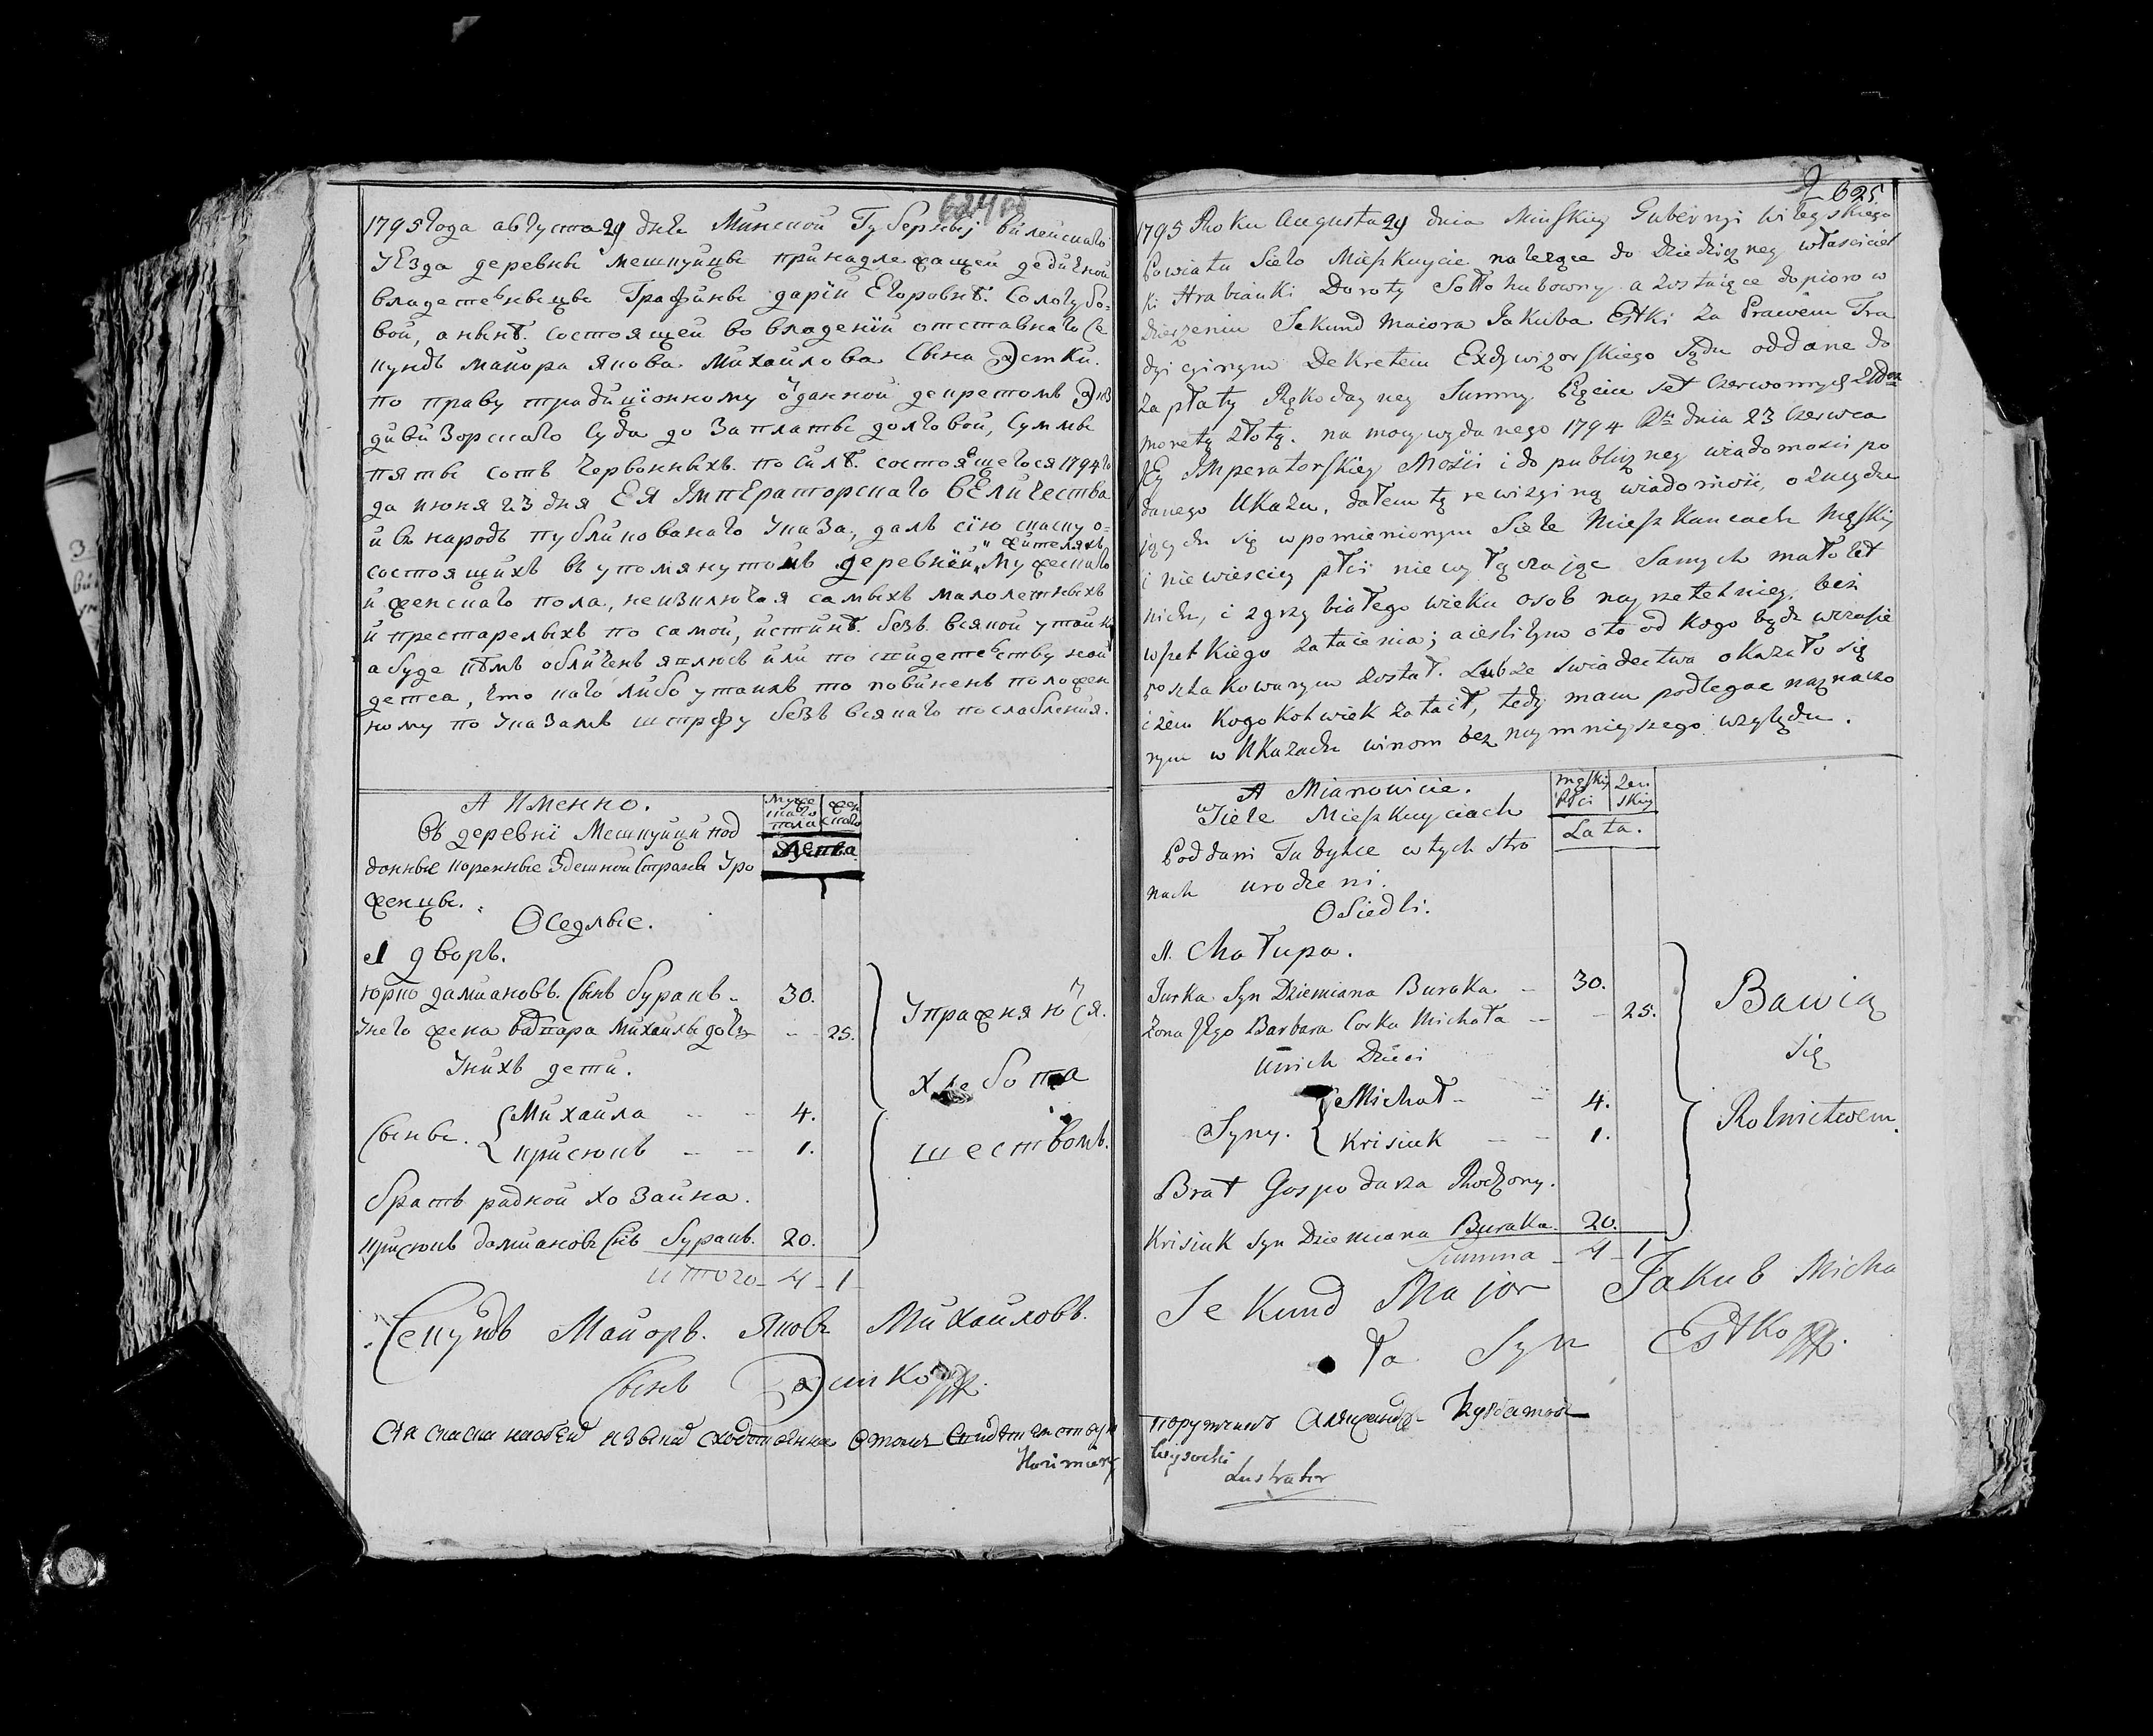 624 об
1795 Года августа 29 дня Минской Губерніи вилейскаго
уезда деревне Мешкуйцы принадлежащей дедичной
владетельницы Графины дарїи Егоровнѣ. Сологубо-
вой, а нынѣ. состоящей во владенїи отставнаго Се
кундъ майора Якова Михайлова Сына Эстки.
по праву традицїонному Отданной декретомъ Экз
дивизорскаго Суда до Заплаты долговой, Суммы
пяти сотъ Червонныхъ. по Силѣ. состоявшегося 1794 го
да июня 23 дня ЕЯ ІмпЕраторскаго вЕличества
и въ народъ публикованаго Указа, далъ сїю скаску о-
состоящихъ въ упомянутомъ деревней жителяхъ Мужескаго
и женскаго пола, неизключая самыхъ малолетныхъ
и престарелыхъ по самой, истинѣ. безъ. всякой утайки
а буде кѣмъ обличенъ явлюсь или по свидетельству най
детса, что каго либо утаилъ то повиненъ положен
ному по Указамъ штрафу безъ всякаго послабления.
А Имекно.
Муже скаго пола
жен скаго
Въ деревнї Мешкуцци под
данные коренные Здешной Страны Уро
женцы.
Лета
Оседлые.
1 дворъ.
юрко дамиановъ. Сынъ буракъ - 30.
Унего жена варвара Михайлы дочь - - 25.
Унихъ дети.
Сыны. { Михаила - - 4.
крисюкъ - - 1.
братъ радной хозаина.
крисюкъ дамиановъ Снъ буракъ. 20.
итого - 4 - 1
Упражняются.
хлебопа
шествомъ.
Секундъ Маиоръ. Яковъ Михаиловъ.
Сынъ Эстко
Ста скаска наобеи языки сходственна Отомъ Свидетельствуи
Казимierz
625
1795 Roku Augusta 29 dnia Minskiey Guberniji Wileyskiego
Powiatu Sieło Mieszkuycie nalezące do Dziedziczney własciciel
ki Hrabianki Doroty Sołłohubowny a zostaiące dopioro w
dzierzeniu Sekund Maiora Jakuba Estki za Prawem Tra
dycyinym Dekretem Exdywizorskiego Sądu oddane do
zapłaty Rękodayney Summy Pięciu set Czerwonnych Złłch
monetą złotą. na mocy wydanego 1794 Rku dnia 23 Czerwca
JEy IMperatorskiey Mości i do publiczney wiadomości po
danego Ukazu, dałem tę rewizyiną wiadomość, o znaydu
jących się wpomienionym Siele Mieszkancach męskiey
i niewiesciey płci niewyłączając Samych małolet
nich, i zgrzybiałego wieku osob nayrzetelniey, beż
wszelkiego zataienia; aieslibym oto od kogo bądz wczasie
poszlakowanym został. Lub ze swiadectwa okazało się
iżem kogokolwiek zataił, tedy mam podlegac naznaczo
nym w Ukazach winom bez naymnieyszego względu.
A Mianowicie.
męskiey płci
Zeń skiey
w Siele Mieszkuyciach
Lata.
Poddani Tubylce wtych stro
nach urodzeni.
OSiedli.
1. Chałupa.
Jurka Syn Dziemiana Buraka. - 30.
Zona Jego Barbara Corka Michała - - 25.
Unich Dzieci
Syny. { Michał - - 4.
Krisiuk - - 1.
Brat Gospodarza Rodzony.
Krisiuk Syn Dziemiana Buraka. 20.
Summa - 4 - 1
Bawią
się
Rolnictwem.
Sekund Major Jakub Micha
ła Syn Estko
порутчикъ Александр
Wysocki
Lustrator